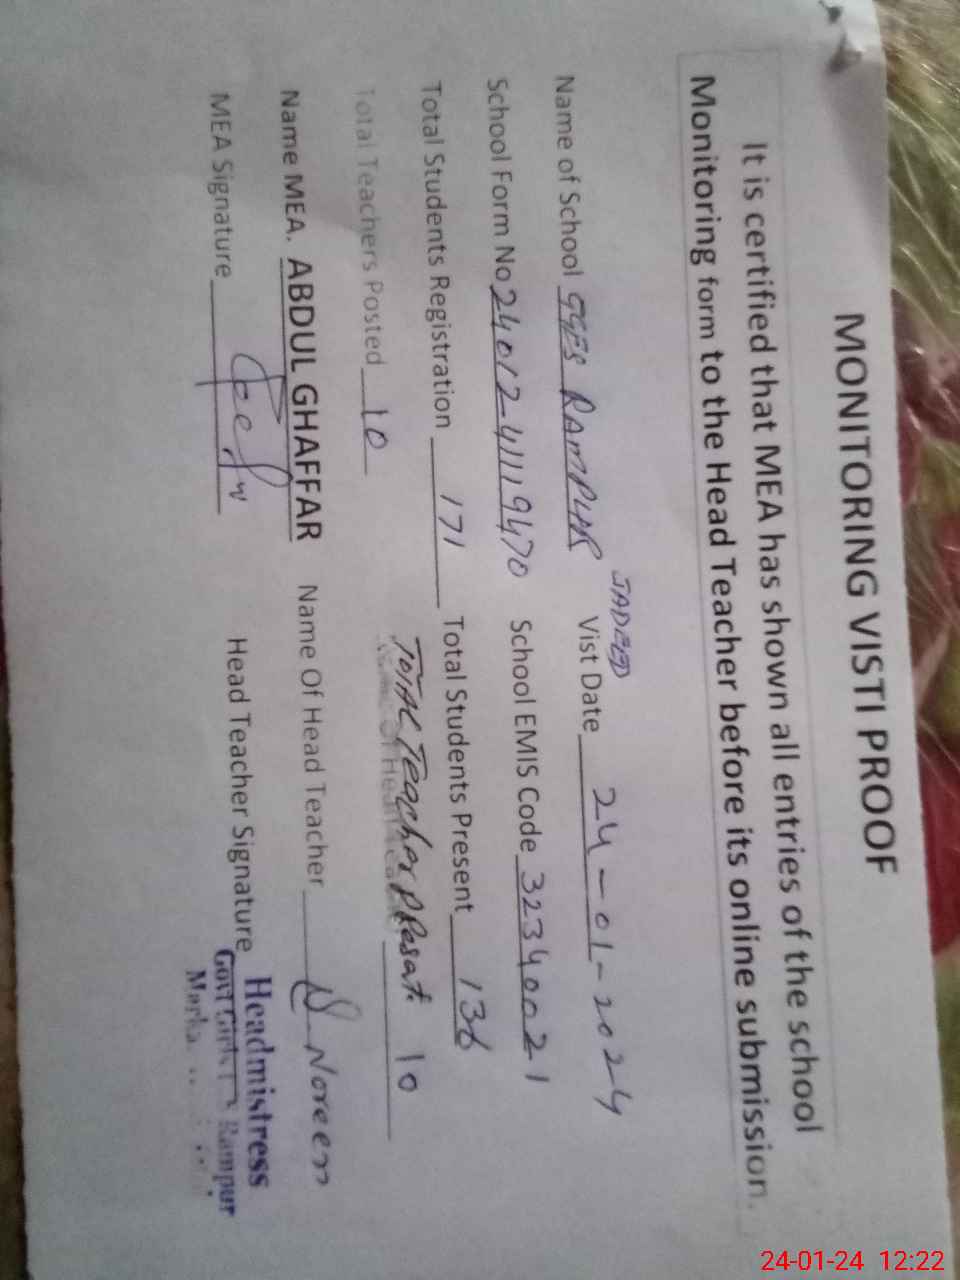 MONITORING VISTI PROOF
It is certified that MEA has shown all entries of the school
Monitoring form to the Head Teacher before its online submission.
Name of School GGES RAMPUR JADEED Vist Date 24-01-2024
School Form No 2401241119470 School EMIS Code 32340021
Total Students Registration 171 Total Students Present 136
Total Teachers Posted 10 TOTAL Teacher PResat. 10
Name MEA. ABDUL GHAFFAR Name Of Head Teacher Noreen
MEA Signature Head Teacher Signature
Headmistress
Govt Girls Rampur
24-01-24 12:22